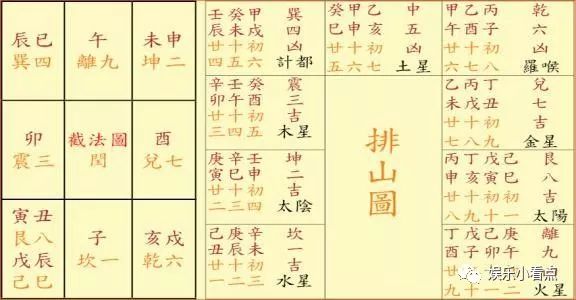 辰巳
巽四
午
離九
未申
坤二
卯
震三
截法圖
閏
酉
兌七
寅丑
艮八
戊辰
己巳
子
坎一
亥戌
乾六
巽四凶計都
甲戌初六
癸未十五
壬辰廿四
中五凶土星
乙亥初七
甲申十六
癸巳廿五
乾六凶羅睺
丙子初八
乙酉十七
甲午廿六
震三吉木星
癸酉初五
壬午十四
辛卯廿三
兌七吉金星
丁丑初九
丙戌十八
乙未廿七
坤二吉太陰
壬申初四
辛巳十三
庚寅廿二
排山圖
艮八吉太陽
己巳初一
戊寅初十
丁亥十九
丙申廿八
坎一吉水星
辛未初三
庚辰十二
己丑廿一
離九吉火星
庚午初二
己卯十一
丁酉廿九
娱乐小看点